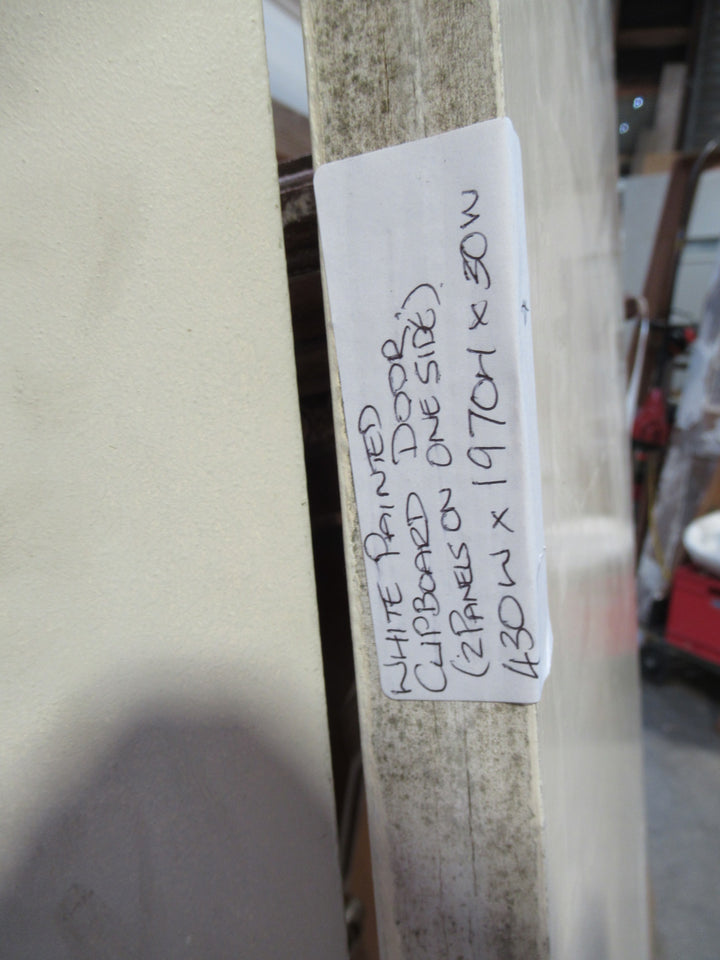 WHITE PAINTED
CLIPBOARD DOOR.
(2 PANELS ON ONE SIDE.)
430W x 1970H x 30W